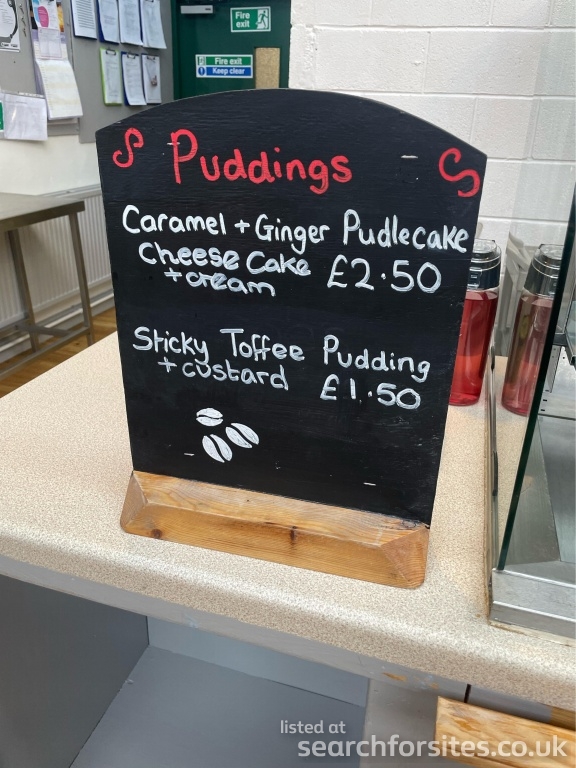 Fire exit
Fire exit
Keep clear
Puddings
Caramel + Ginger Pudlecake
Cheese Cake
+ cream £2.50
Sticky Toffee Pudding
+ custard £1.50
listed at
searchforsites.co.uk